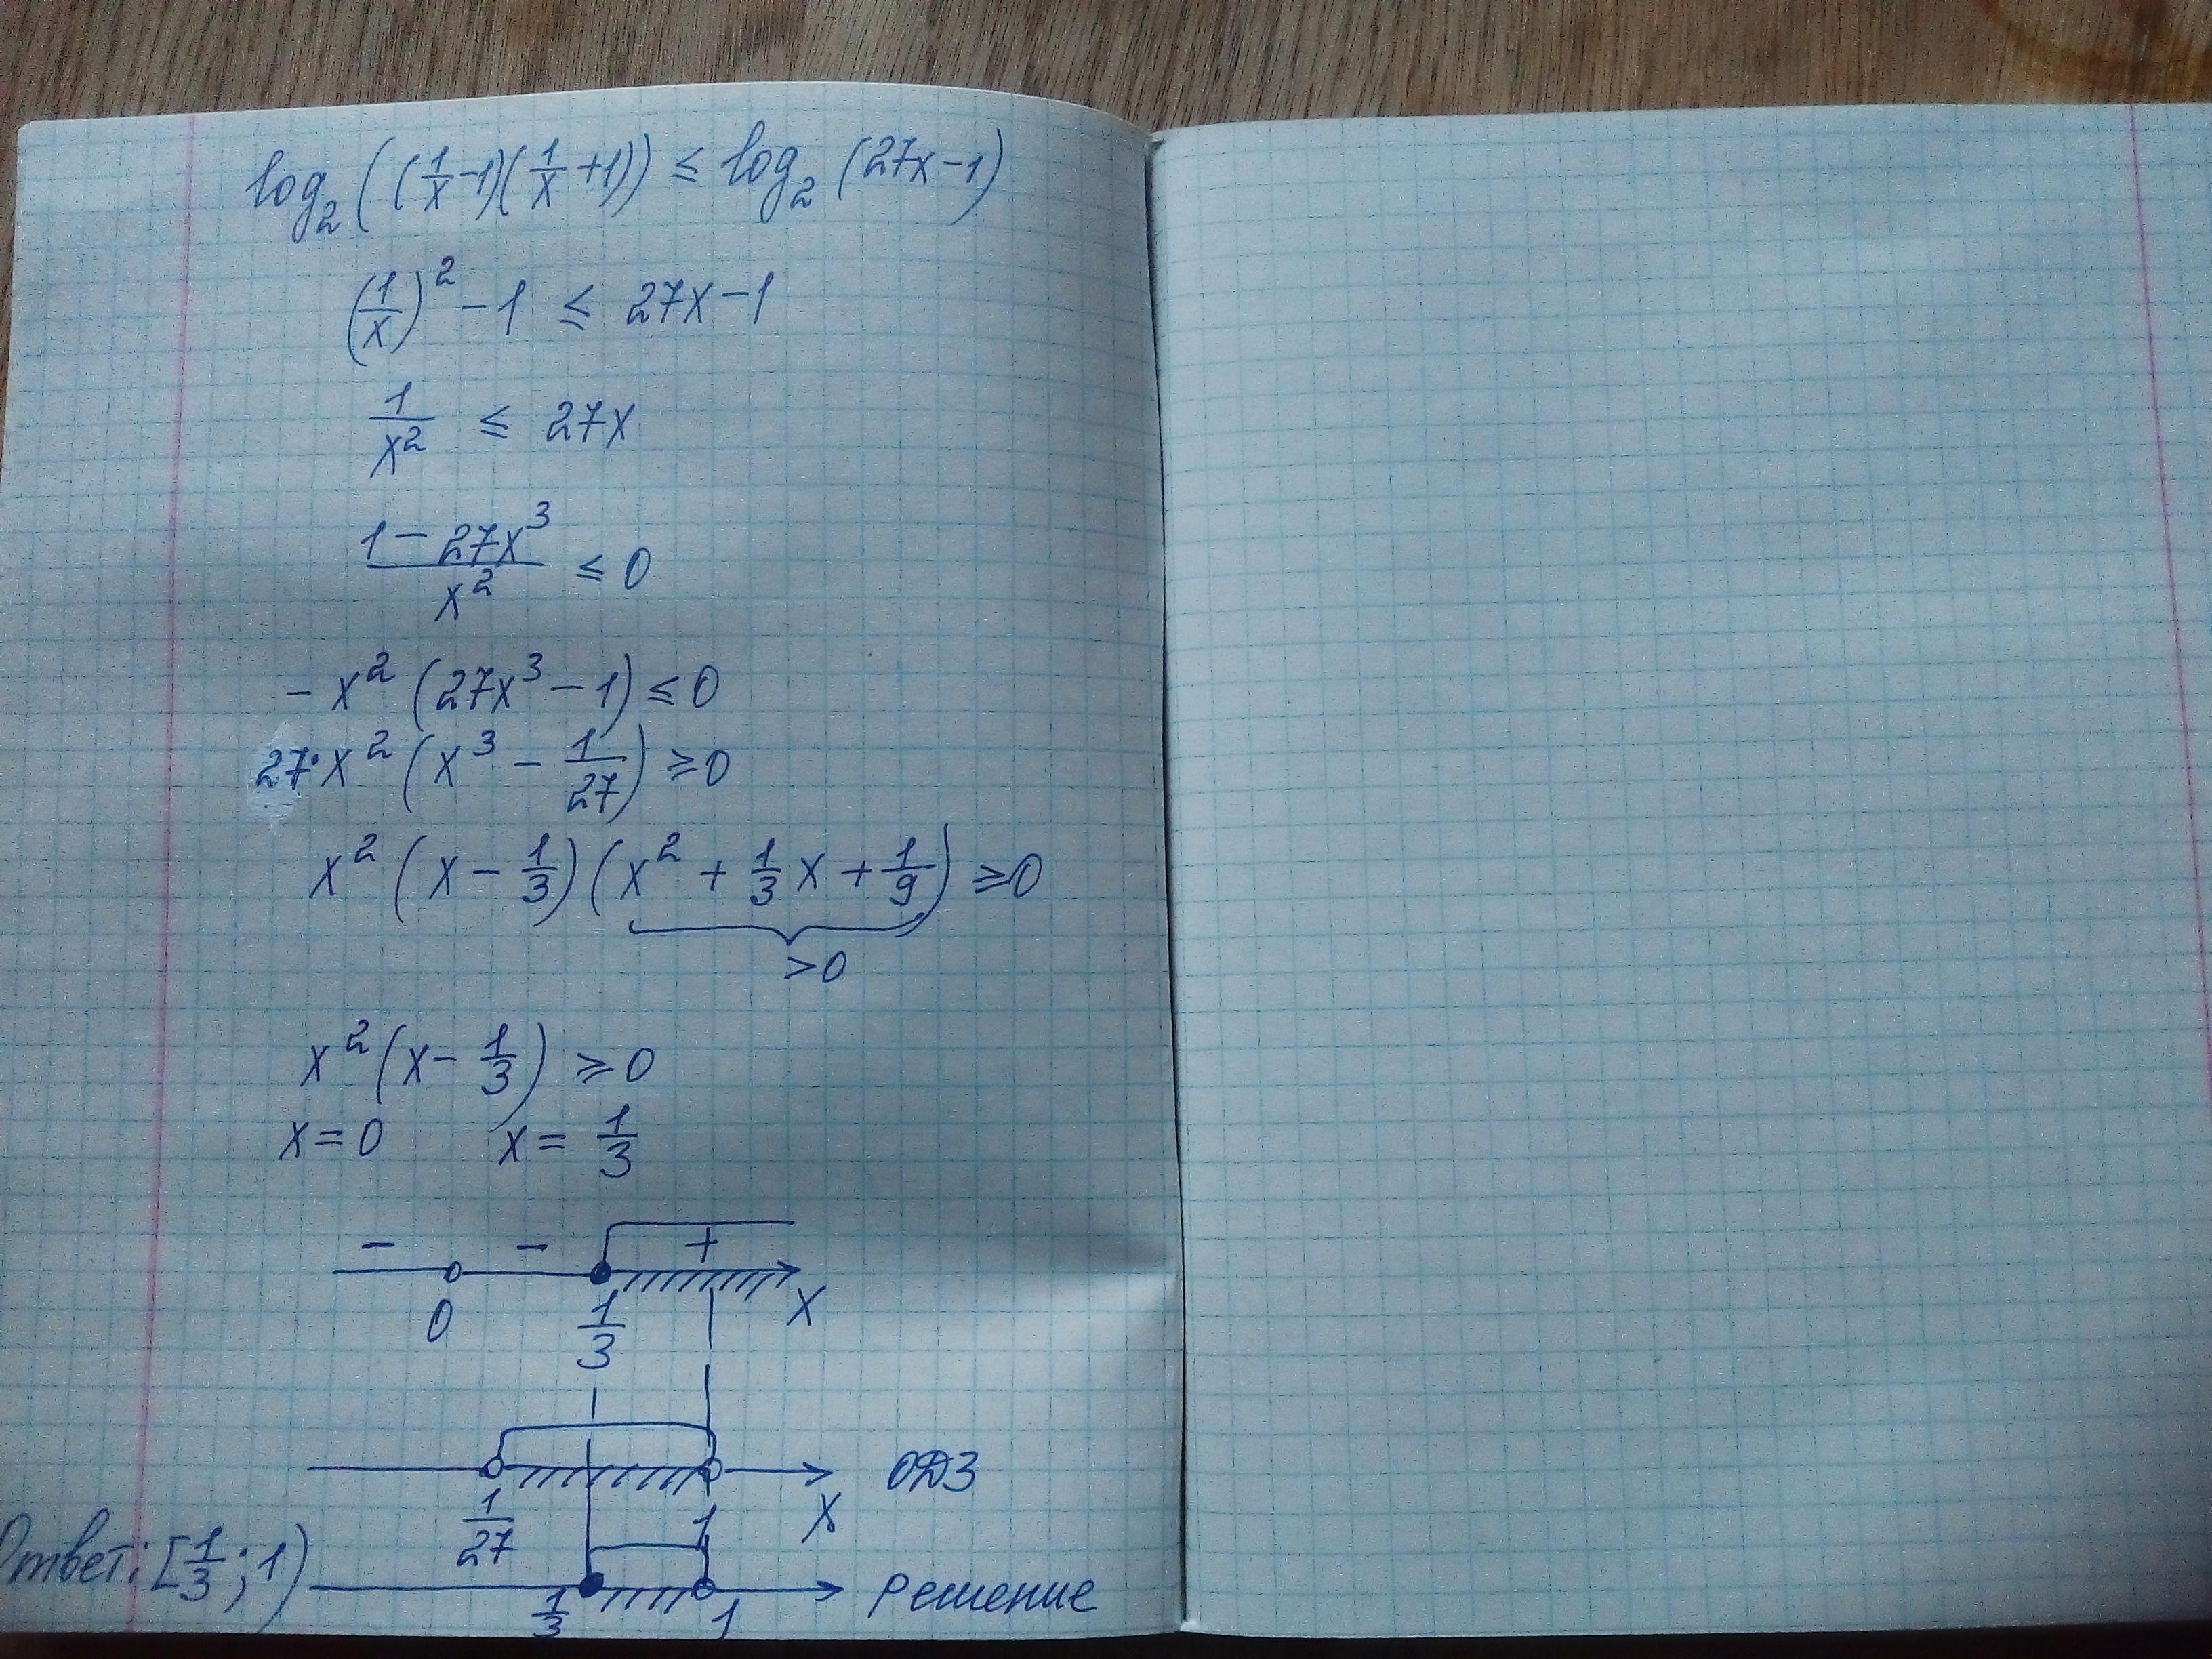 log₂((1/x − 1)(1/x + 1)) ≤ log₂(27x − 1)
(1/x)² − 1 ≤ 27x − 1
1/x² ≤ 27x
(1 − 27x³)/x² ≤ 0
− x² (27x³ − 1) ≤ 0
27·x² (x³ − 1/27) ≥ 0
x² (x − 1/3)(x² + 1/3 x + 1/9) ≥ 0
> 0
x² (x − 1/3) ≥ 0
x = 0 x = 1/3
− − +
0 1/3 x
ОДЗ
1/27 1 x
Ответ: [1/3; 1)
1/3 1 решение